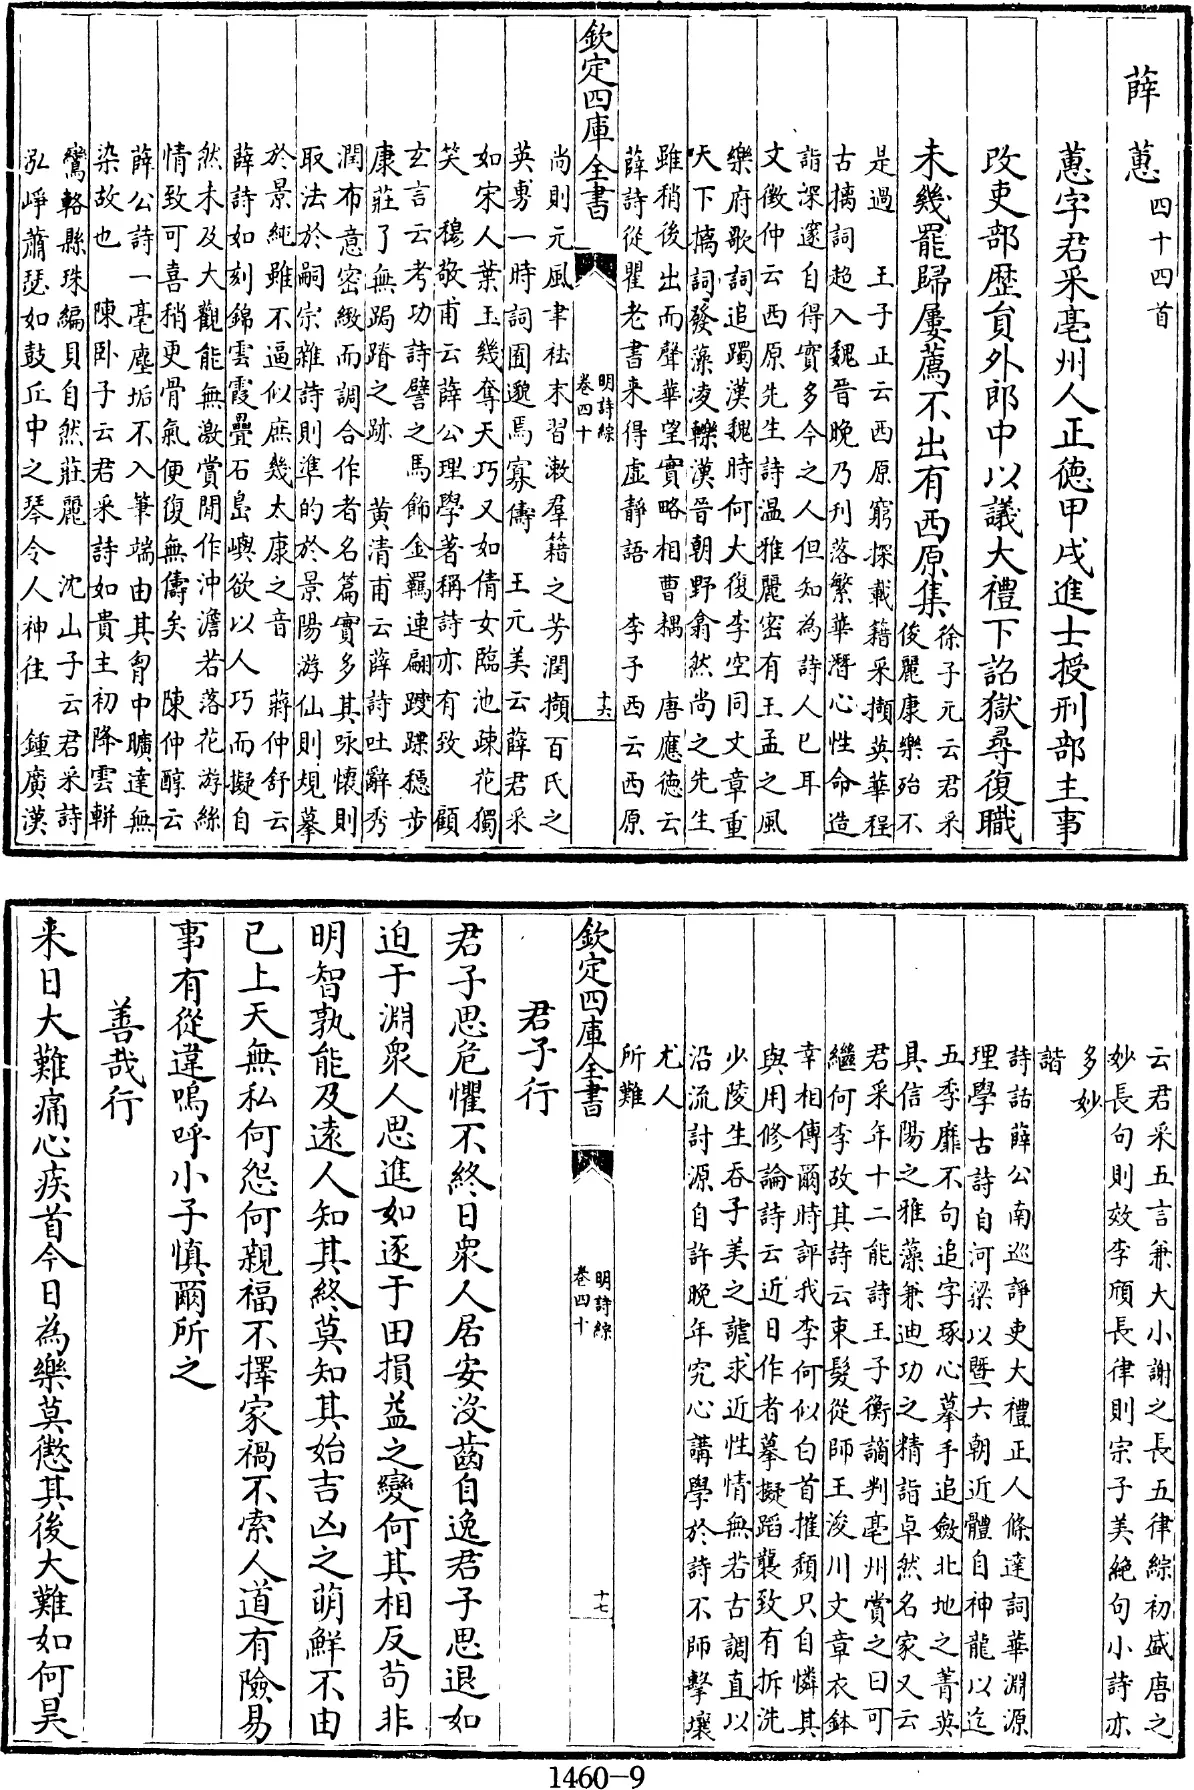 薛蕙 四十四首
蕙字君采亳州人正德甲戌進士授刑部主事
改吏部歴員外郎中以議大禮下詔獄尋復職
未幾罷歸屢薦不出有西原集
徐子元云君采
俊麗康樂殆不
是過 王子正云西原窮探載籍采擷英華程
古摛詞超入魏晋晚乃刋落繁華潛心性命造
詣深邃自得實多今之人但知為詩人已耳
文徵仲云西原先生詩温雅麗密有王孟之風
樂府歌詞追躅漢魏時何大復李空同文章重
天下摛詞發藻凌轢漢晉朝野翕然尚之先生
雖稍後出而聲華望實略相曹耦 唐應徳云
薛詩從瞿老書来得虛靜語 李子西云西原
欽定四庫全書 明詩綜 卷四十 十六
尚則元風聿祛末習漱羣籍之芳潤擷百氏之
英勇一時詞囿邈焉寡儔 王元美云薛君采
如宋人葉玉幾奪天巧又如倩女臨池疎花獨
笑 穆敬甫云薛公理學著稱詩亦有致 顧
玄言云考功詩譬之馬飾金羈連翩躞蹀穩步
康莊了無跼蹐之跡 黄清甫云薛詩吐辭秀
潤布意密緻而調合作者名篇實多其咏懷則
取法於嗣宗雜詩則準的於景陽游仙則規摹
於景純雖不逼似庶幾太康之音 蔣仲舒云
薛詩如刻錦雲霞疊石島嶼欲以人巧而擬自
然未及大觀能無激賞閒作沖澹若落花游絲
情致可喜稍更骨氣便復無儔矣 陳仲醇云
薛公詩一毫塵垢不入筆端由其胷中曠達無
染故也 陳卧子云君采詩如貴主初降雲軿
鸞輅縣珠編貝自然莊麗 沈山子云君采詩
泓崢蕭瑟如鼓丘中之琴令人神往 鍾廣漢
云君采五言兼大小謝之長五律綜初盛唐之
妙長句則效李頎長律則宗子美絶句小詩亦
多妙
諧
詩話薛公南巡諍吏大禮正人條達詞華淵源
理學古詩自河梁以曁六朝近體自神龍以迄
五季靡不句追字琢心摹手追斂北地之菁英
具信陽之雅藻兼迪功之精詣卓然名家又云
君采年十二能詩王子衡謫判亳州賞之曰可
繼何李故其詩云束髮從師王浚川文章衣鉢
幸相傳爾時評我李何似白首摧頽只自憐其
與用修論詩云近日作者摹擬蹈襲致有拆洗
少陵生吞子美之謔求近性情無若古調直以
沿流討源自許晚年究心講學於詩不師擊壤
尤人
所難
欽定四庫全書 明詩綜 卷四十 十七
君子行
君子思危懼不終日衆人居安没齒自逸君子思退如
迫于淵衆人思進如逐于田損益之變何其相反茍非
明智孰能及逺人知其終莫知其始吉凶之萌鮮不由
已上天無私何怨何親福不擇家禍不索人道有險易
事有從違嗚呼小子慎爾所之
善哉行
来日大難痛心疾首今日為樂莫懲其後大難如何昊
1460-9